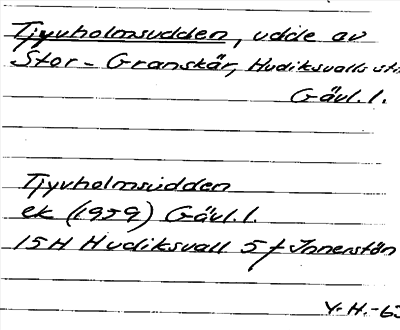 Tjyvholmsudden, udde av
Stor-Granskär, Hudiksvalls st
Gävl. l.
Tjyvholmsudden
ek (1959) Gävl. l.
15H Hudiksvall 5f Innerstön
V. H. -63